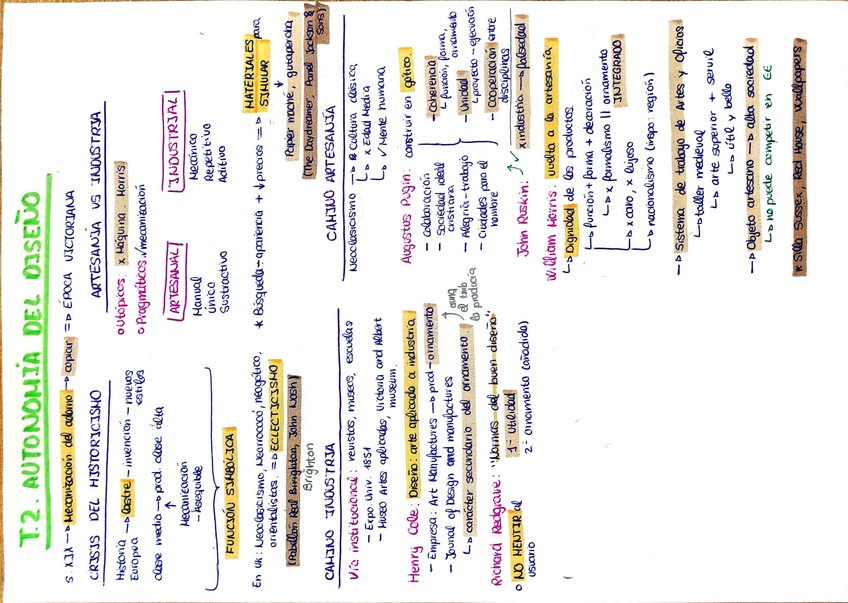 T.2. AUTONOMÍA DEL DISEÑO
S. XIX → Mecanización del adorno → copiar => ÉPOCA VICTORIANA
CRISIS DEL HISTORICISMO
Historia → Lastre - invención - nuevos
Europea estilos
clase media → prod. clase alta
↑
Mecanización
- asequible
FUNCIÓN SIMBÓLICA
En UK: Neoclasicismo, Neorrococó, neogótico,
orientalistas. => ECLECTICISMO
(Pabellón Real Biringhton, John Nash)
Brighton
ARTESANÍA VS INDUSTRIA
o Utópicos. x Máquina. Morris
o Pragmáticos. ✓mecanización
ARTESANAL
Manual
Único
Sustractivo
INDUSTRIAL
Mecánico
Repetitivo
Aditivo
* Búsqueda: apariencia + ↓ precios => MATERIALES para
SIMULAR
↓
Papier maché, gutapercha
(The Daydreamer, Panel Jackson &
Sons)
CAMINO INDUSTRIA
Vía institucional: revistas, museos, escuelas
- Expo. Univ. 1851
- Museo Artes aplicadas, Victoria and Albert
museum.
Henry Cole: Diseño: arte aplicado a industria
- Empresa: Art Manufactures → prod-ornamento
- Jounal of Design and manufactures
↳ carácter secundario del ornamento.
↗ aunq
el tmb
lo producía
Richard Redgrave: "Normas del buen diseño"
o NO MENTIR al
usuario
1º utilidad
2º ornamento (añadido)
CAMINO ARTESANÍA
Neoclasicismo → Cultura clásica
↳ x Edad Media
↳ ✓ Mente humana
Augustus Pugin: construir en gótico.
- Colaboración
- Sociedad ideal
cristiana
- Alegría - trabajo
- Ciudades para el
hombre
- Coherencia
↳ función, forma,
ornamento
- Unidad
↳ proyecto - ejecución
- Cooperación entre
disciplinas
John Ruskin: x industria → falsedad
William Morris: vuelta a la artesanía
↳ Dignidad de los productos
↳ función + forma + decoración
↳ x formalismo || ornamento
INTEGRADO
↳ x caro, x lujoso
↳ nacionalismo (inspo: región)
→ Sistema de trabajo de Artes y Oficios
↳ taller medieval
↳ arte superior + servil
↳ útil y bello
→ Objeto artesano → alta sociedad
↳ no puede competir en
* Silla Sussex, Red House, Wallpapers